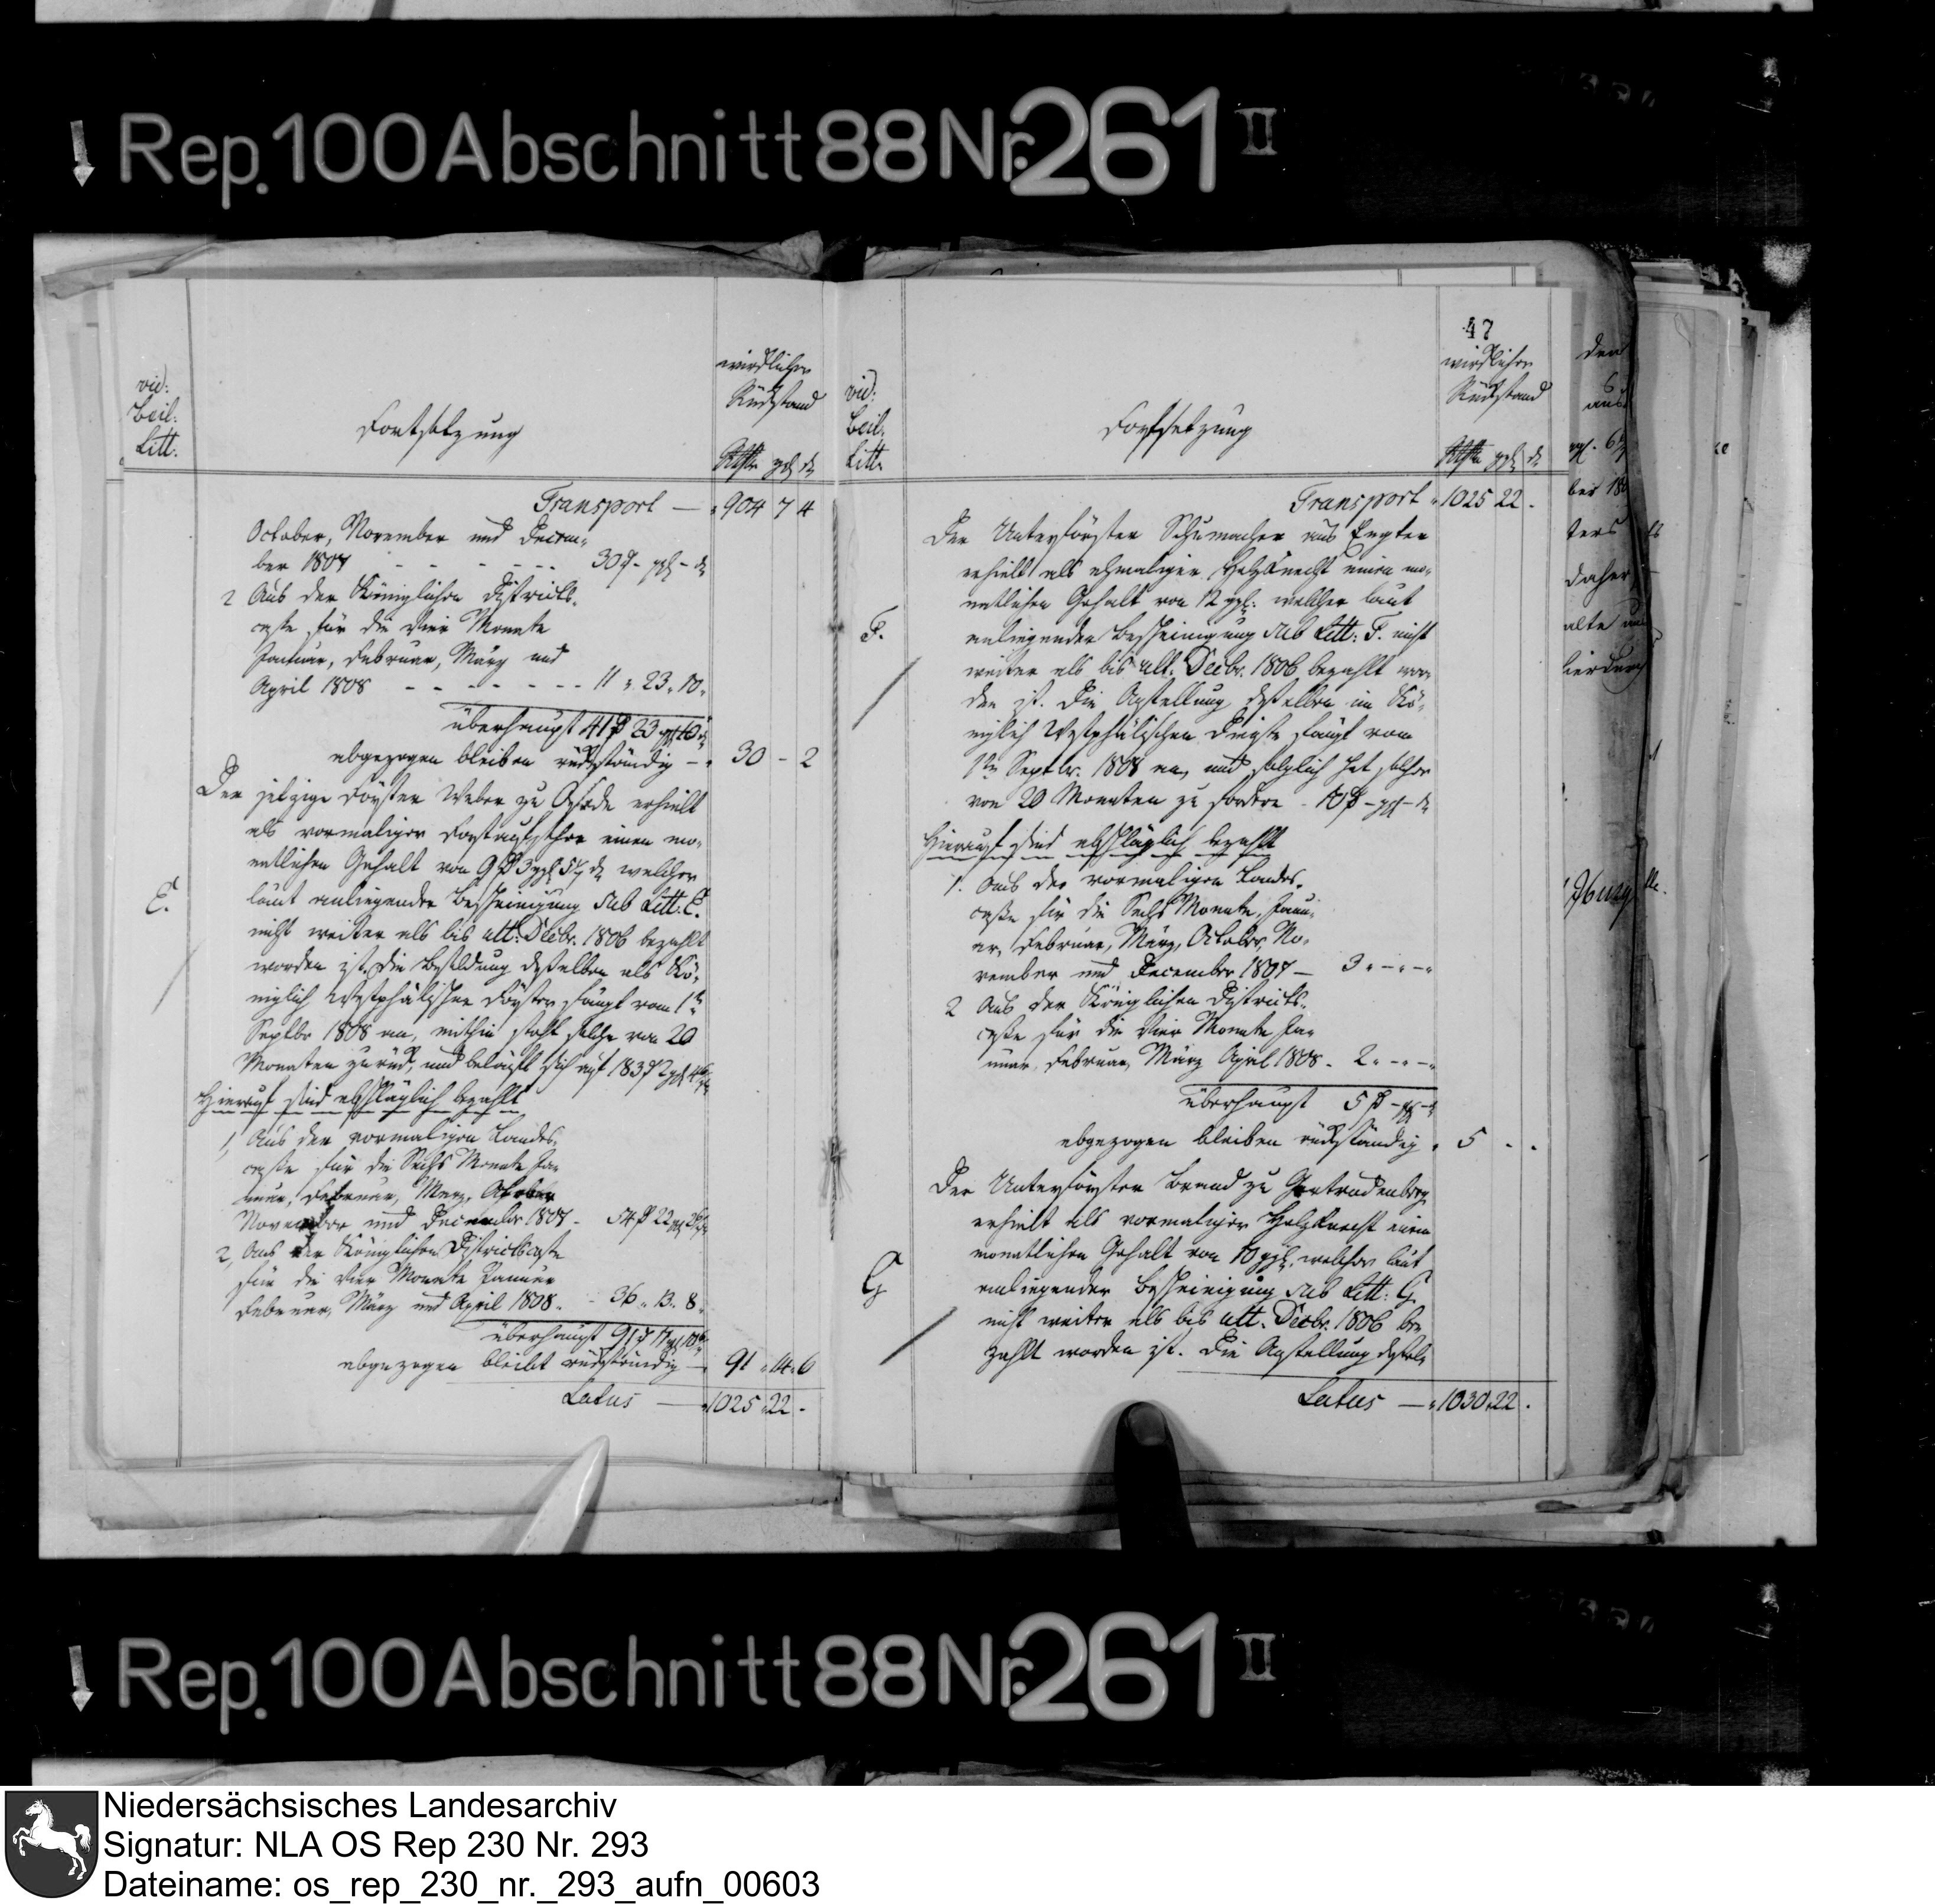 Rep. 100 Abschnitt 88 Nr. 261 II
vid:
Beil:
Litt.
Fortsetzung
wirklicher
Rückstand
Rthlr ggl d
Transport — 904 7 4
October, November und Decem-
ber 1807 - - - - - 30 - ggl - d
2 Aus der Königlichen Districts-
casse für die vier Monate
Januar, Februar, März und
April 1808 - - - - - - - 11 „ 23 „ 10 „
überhaupt 41 23 ggl 10 d
abgezogen bleiben rückständig — 30 - 2
Der jetzige Förster Weber zu Oesede erhielt
als vormaliger Forstaufseher einen mo-
natlichen Gehalt von 9 3 ggl 5 d welcher
E. laut anliegender Bescheinigung sub Litt. E.
nicht weiter als bis ult: Decbr. 1806 bezahlt
worden ist, die Besoldung desselben als Kö-
niglich Westphälischer Förster fängt vom 1t
Septbr 1808 an, mithin steht solche von 20
Monaten zurück, und beläuft sich auf 183 2 ggl
Hierauf sind abschläglich bezahlt
1, Aus der vormaligen Landes-
casse für die Sechs Monate Ja-
nuar, Februar, Merz, October
November und December 1807 - 54 22 ggl
2, Aus der Königlichen Districtscasse
für die vier Monate Januar
Februar, März und April 1808 . - 36 „ 13 „ 8 „
überhaupt 91 ggl
abgezogen bleibt rückständig — 91 „ 14 „ 6
Latus — 1025 „ 22 -
47
vid:
Beil:
Litt.
Fortsetzung
wirklicher
Rückstand
Rthlr ggl d
Transport „ 1025 22 -
Der Unterförster Schumacher aus Engter
erhielt als ehmaliger Holzknecht einen mo-
natlichen Gehalt von 12 ggl. welcher laut
F. anliegender Bescheinigung sub Litt: F. nicht
weiter als bis ult. Decbr. 1806 bezahlt wor-
den ist. Die Anstellung desselben im Kö-
niglich Westphälischen Dienste fängt vom
1ten Septbr. 1808 an, und folglich hat solcher
von 20 Monaten zu fordern - 10 - ggl - d
Hierauf sind abschläglich bezahlt
1. Aus der vormaligen Landes-
casse für die Sechs Monate, Janu-
ar, Februar, März, October, No-
vember und December 1807 — 3 „ - „ - „
2 Aus der Königlichen Districts-
casse für die vier Monate Ja-
nuar, Februar, März April 1808 - 2 „ - „ - „
überhaupt 5 - ggl - d
abgezogen bleiben rückständig „ 5 - -
Der Unterförster Brand zu Gertrudenberg
erhielt als vormaliger Holzknecht einen
monatlichen Gehalt von 10 ggl. welcher laut
G anliegender Bescheinigung sub Litt: G.
nicht weiter als bis ult. Decbr. 1806 be-
zahlt worden ist. Die Anstellung dessel-
Latus — „ 1030 „ 22 .
ters
daher
alte
hierdurch
Rep. 100 Abschnitt 88 Nr. 261 II
Niedersächsisches Landesarchiv
Signatur: NLA OS Rep 230 Nr. 293
Dateiname: os_rep_230_nr._293_aufn_00603